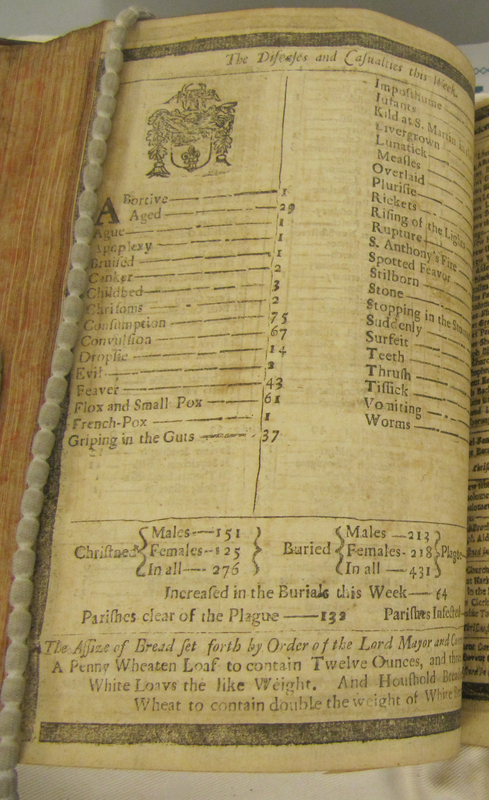 The Diseases and Casualties this Week.
ABortive — 1
Aged — 29
Ague — 1
Apoplexy — 1
Bruised — 1
Canker — 2
Childbed — 3
Chrisoms — 2
Consumption — 75
Convulsion — 67
Dropsie — 14
Evil — 2
Feaver — 43
Flox and Small Pox — 61
French-Pox — 1
Griping in the Guts — 37
Imposthume
Infants
Kild at S. Martin
Livergrown
Lunatick
Measles
Overlaid
Plurisie
Rickets
Rising of the Lights
Rupture
S. Anthony's Fire
Spotted Feavor
Stilborn
Stone
Stopping in the
Suddenly
Surfeit
Teeth
Thrush
Tissick
Vomiting
Worms
Christned { Males — 151 Females — 125 In all — 276 }
Buried { Males — 213 Females - 218 In all — 431 }
Increased in the Burials this Week — 64
Parishes clear of the Plague — 132 Parishes Infected
The Assize of Bread set forth by Order of the Lord Mayor and
A Penny Wheaten Loaf to contain Twelve Ounces, and three
White Loavs the like Weight. And Houshold
Wheat to contain double the weight of White